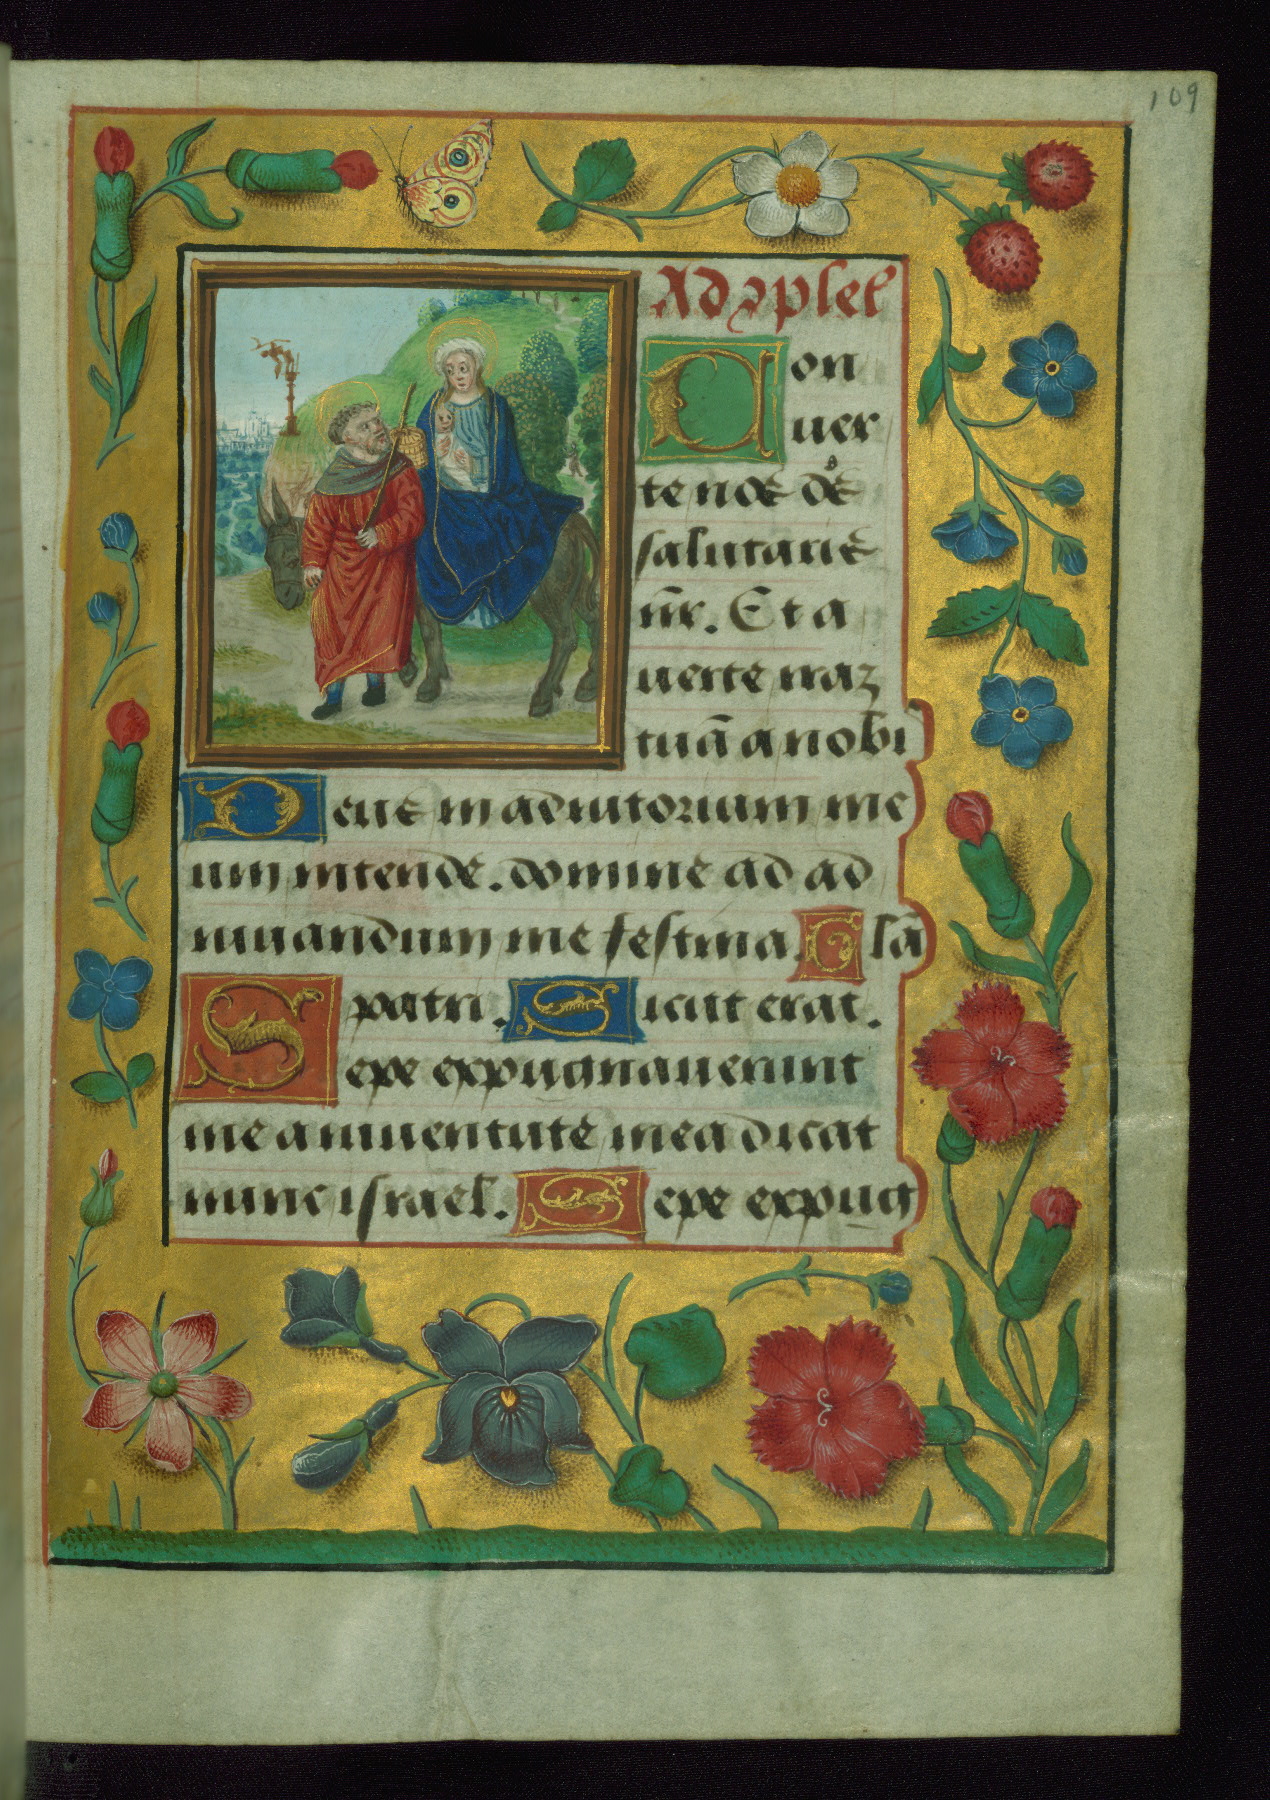 109
Ad ꝯplet̛
Con
uer
te nos de⁹
salutaris
nr̄. Et a
uerte iraʒ
tuā a nobi
Deus in adiutorium me
um intende. domine ad ad
iuuandum me festina. Glā
patri. Sicut erat.
Sepe expugnauerunt
me a iuuentute mea dicat
nunc israel. Sepe expug